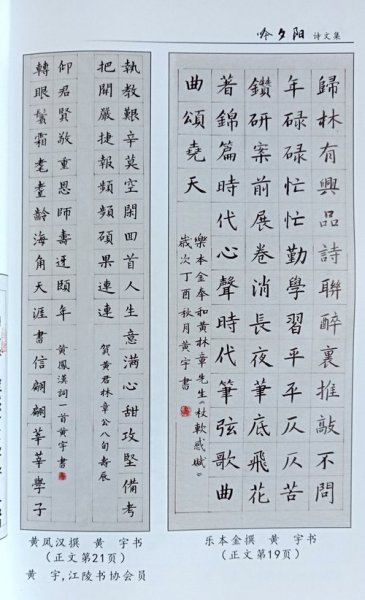 吟夕阳 诗文集
歸林有興品詩聯醉裏推敲不問
年碌碌忙忙勤學習平平仄仄苦
鑽研案前展卷消長夜筆底飛花
著錦篇時代心聲時代筆弦歌曲
曲頌堯天
樂本金奉和黃林章先生《杖感賦》
歲次丁酉秋月黃宇書
執教艱辛莫空閑回首人生意滿心甜攻堅備考
把關嚴捷報頻頻碩果連連
賀黃君林章公八旬壽辰
轉眼鬢霜耄耋齡海角天涯書信翩翩莘莘學子
仰君賢敬重恩師壽迓頤年
黃鳳漢詞一首黃宇書
黄凤汉撰 黄 宇书
(正文第21页)
黄 宇,江陵书协会员
乐本金撰 黄 宇书
(正文第19页)